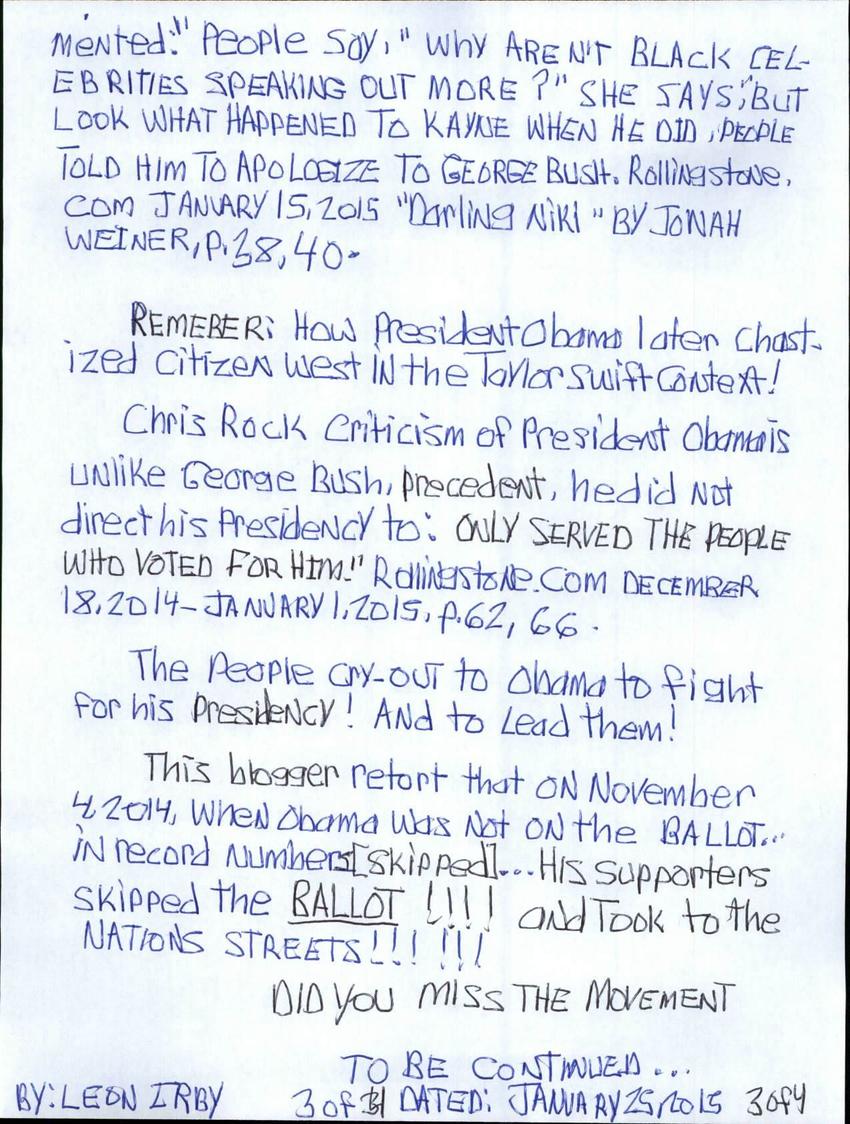 mented:" People say, "Why AREN'T BLACK CEL-
EBRITIES SPEAKING OUT MORE?" SHE SAYS, "BUT
LOOK WHAT HAPPENED TO KAYNE WHEN HE DID, PEOPLE
TOLD HIM TO APOLOGIZE TO GEORGE BUSH. Rollingstone.
COM JANUARY 15, 2015 "Darling Niki" BY JONAH
WEINER, P. 38, 40.
REMEBER: How President Obama later chast-
ized Citizen West IN the Taylor Swift Context!
Chris Rock Criticism of President Obama is
UNlike George Bush, precedent, he did NOT
direct his Presidency to: ONLY SERVED THE PEOPLE
WHO VOTED FOR HIM." Rollingstone.Com DECEMBER
18, 2014-JANUARY 1, 2015, P. 62, 66.
The People cry-out to Obama to fight
for his Presidency! And to Lead them!
This blogger retort that ON November
4, 2014, When Obama Was Not ON the BALLOT...
in record Numbers [skipped]... His supporters
skipped the BALLOT !!!! and Took to the
NATIONS STREETS!!! !!!
DID YOU MISS THE MOVEMENT
TO BE CONTINUED...
BY: LEON IRBY 3 of 4 DATED: JANUARY 25, 2015 3 of 4